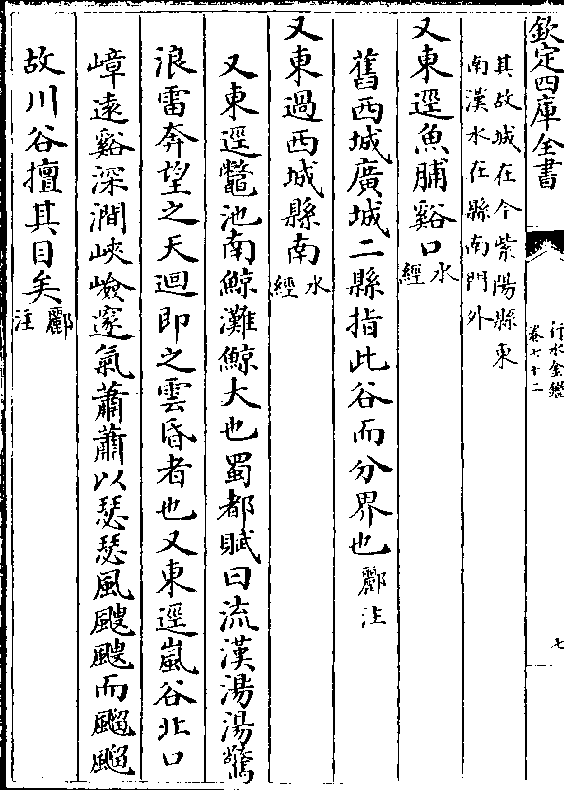 欽定四庫全書
行水金鑑
卷七十二
七
其故城在今紫陽縣東
南漢水在縣南門外
又東逕魚脯谿口水
經
舊西城廣城二縣指此谷而分界也酈
注
又東過西城縣南水
經
又東逕鼈池南鯨灘鯨大也蜀都賦曰流漢湯湯驚
浪雷奔望之天迴即之雲昏者也又東逕嵐谷北口
嶂遠谿深澗峽嶮邃氣蕭蕭以瑟瑟風颼颼而飀飀
故川谷擅其目矣酈
注